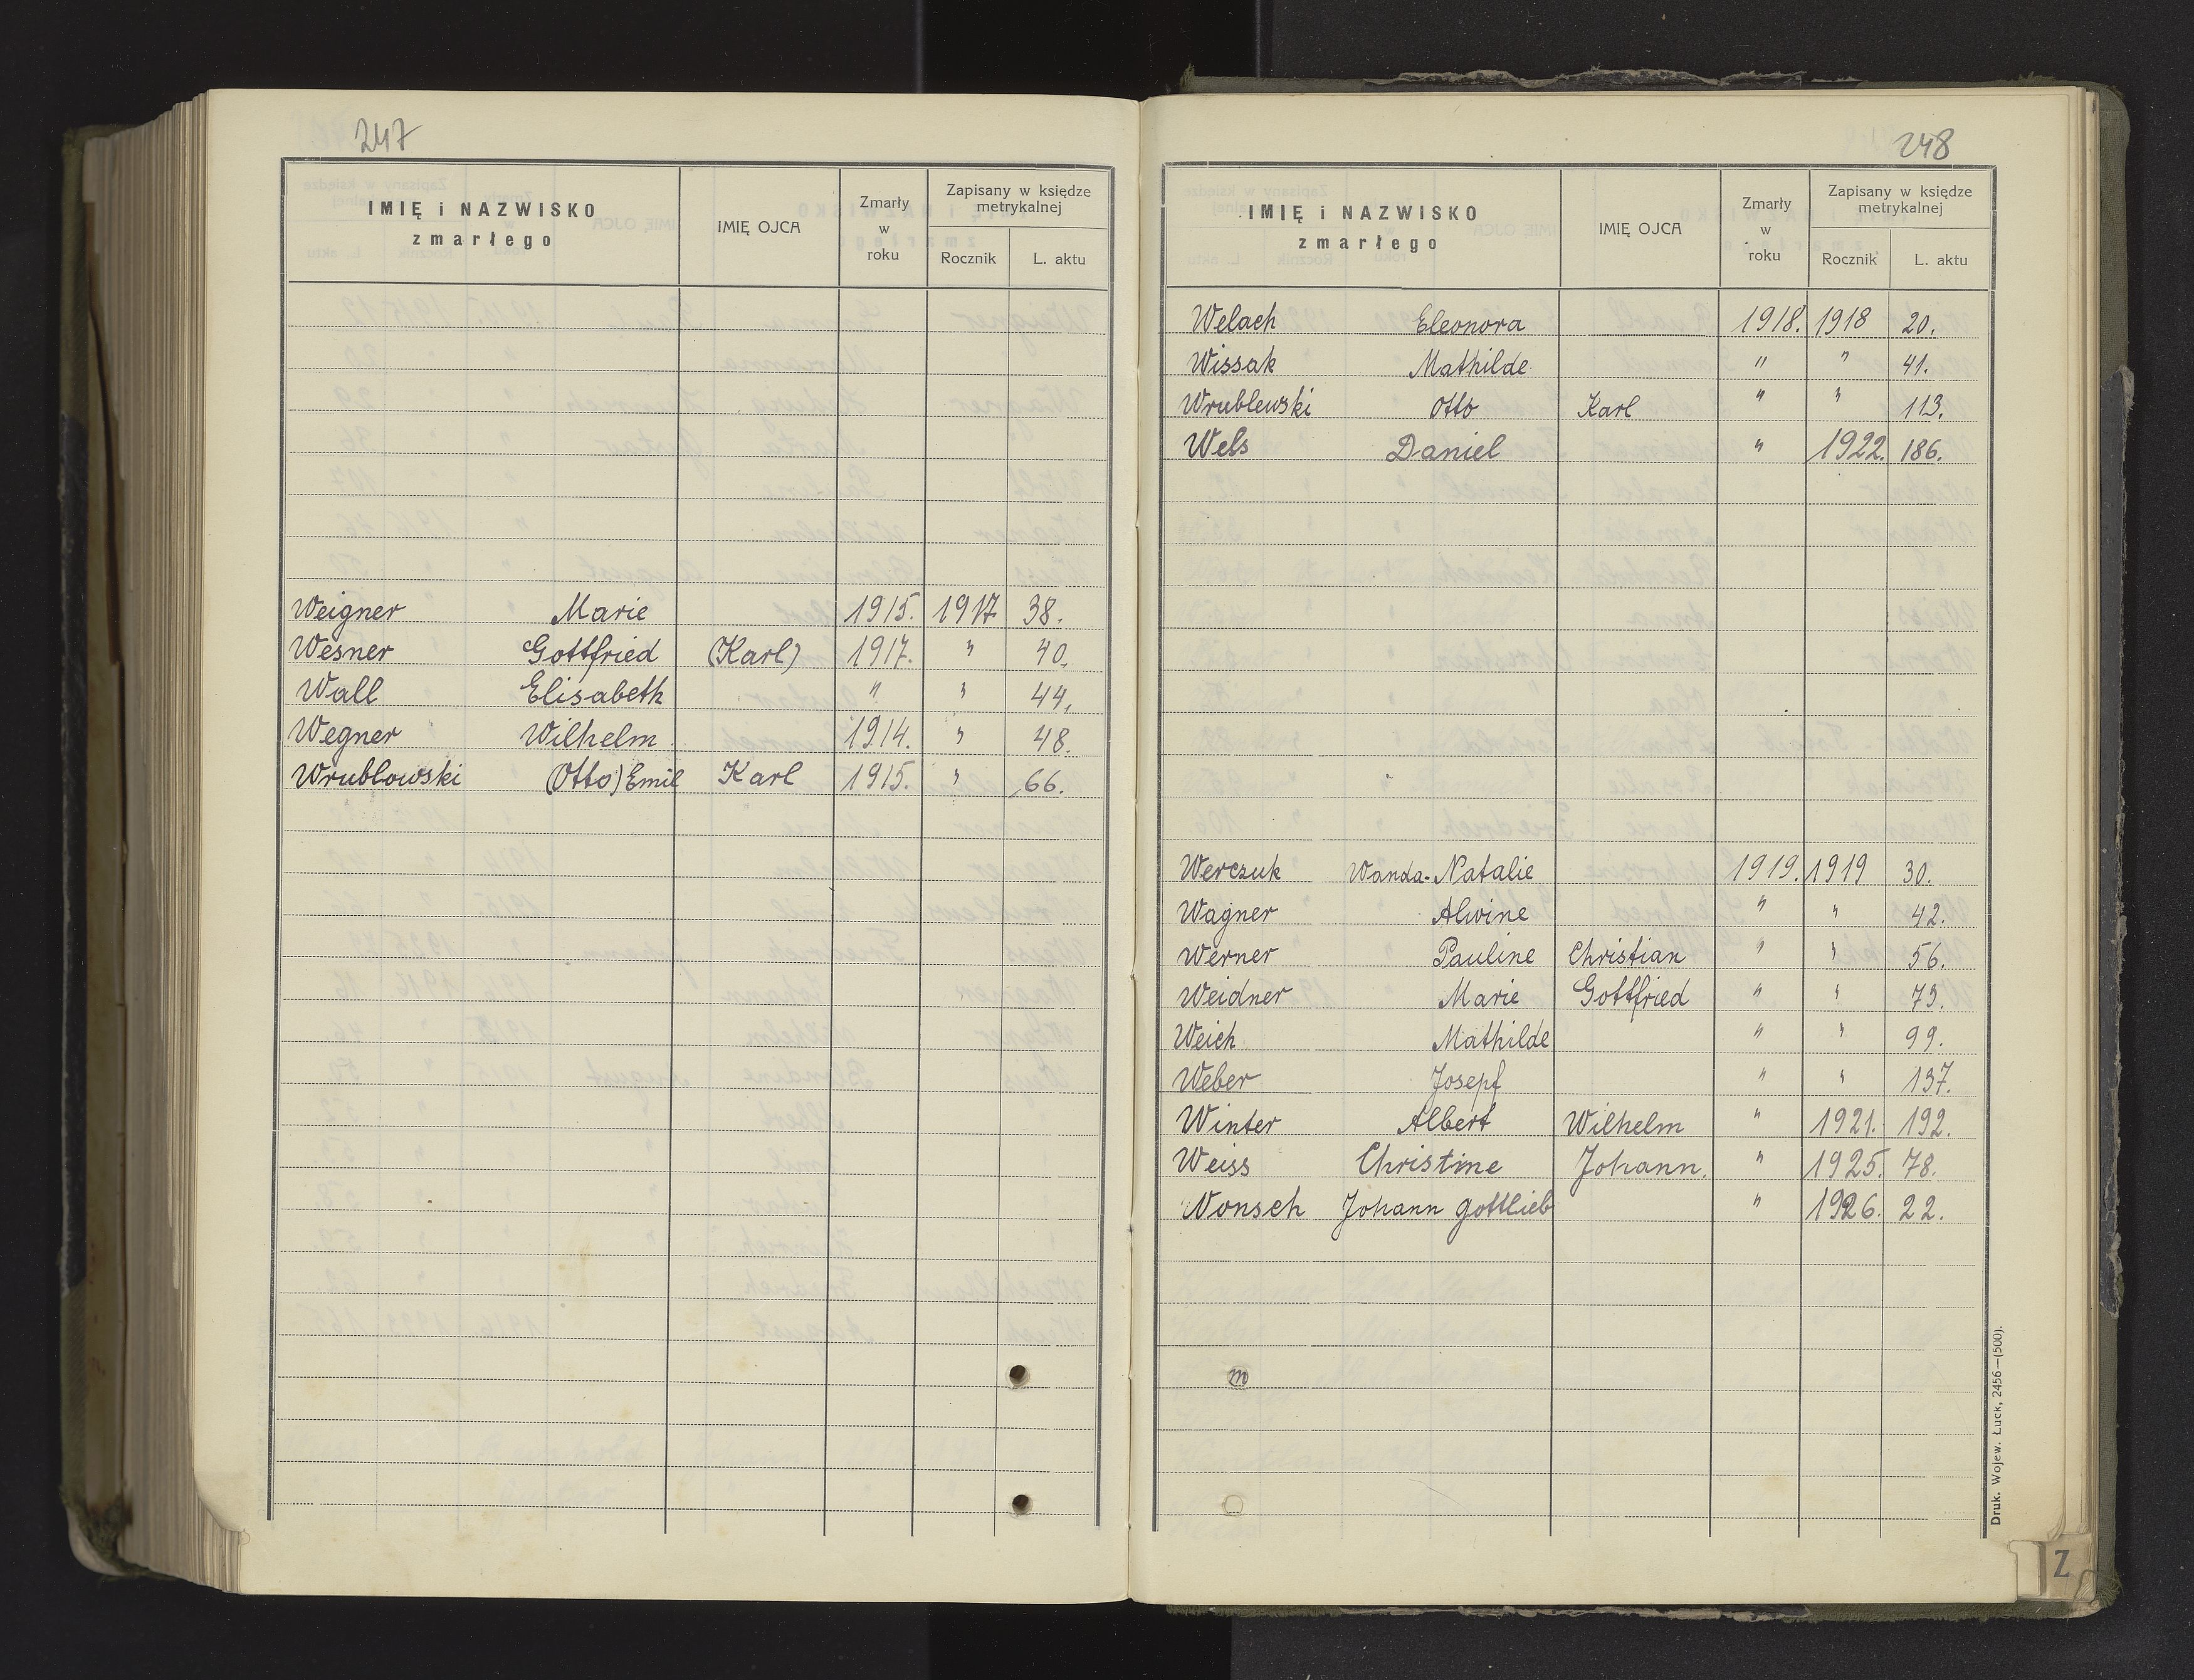 247
IMIĘ i NAZWISKO zmarłego IMIĘ OJCA Zmarły w roku Zapisany w księdze metrykalnej Rocznik L. aktu
Weigner Marie 1915. 1917 38.
Wesner Gottfried (Karl) 1917. " 40.
Wall Elisabeth " " 44.
Wegner Wilhelm 1914. " 48.
Wrublowski (Otto) Emil Karl 1915. " 66.
248
IMIĘ i NAZWISKO zmarłego IMIĘ OJCA Zmarły w roku Zapisany w księdze metrykalnej Rocznik L. aktu
Welach Eleonora 1918. 1918 20.
Wissak Mathilde " " 41.
Wrublewski Otto Karl " " 113.
Wels Daniel " 1922. 186.
Werczuk Wanda-Natalie 1919. 1919 30.
Wagner Alwine " " 42.
Werner Pauline Christian " " 56.
Weidner Marie Gottfried " " 73.
Weich Mathilde " " 99.
Weber Josepf " " 137.
Winter Albert Wilhelm " 1921. 192.
Weiss Christine Johann. " 1925. 78.
Wonsch Johann Gottlieb " 1926. 22.
m
Druk. Wojew. Łuck, 2456—(500).
Z